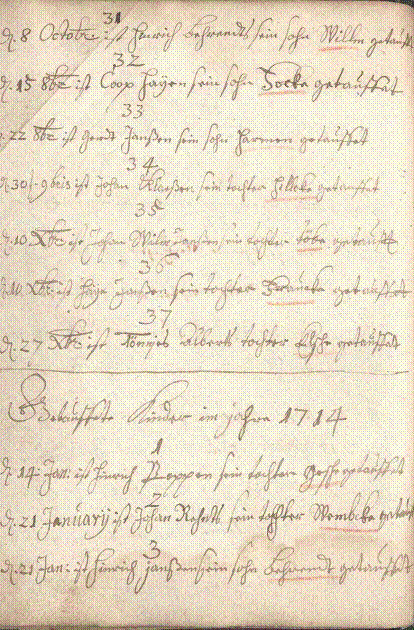 31
d. 8 Octobr ist Hinrich Behrendts sein sohn Willm getauft
32
d. 15 8br ist Coop Hayen sein sohn Focke getauffet
33
d. 22 8br ist Gerdt Janßen sein sohn Harmen getauffet
34
d. 30 9bris ist Johan Klaeßen sein tochter Hilcke getauffet
35
d. 10 Xbr ist Johan Janßen sein tochter getaufft
36
d. Xbr ist Haye Janßen sein tochter Frauke getauffet
37
d. 27 Xbr ist Tönnjes Alberts tochter Elsche getauffet
Getauffete Kinder im jahre 1714
1
d. 14 Jan: ist Hinrich Poppen sein tochter Gesche getauffet
2
d. 21 Januarij ist Johan Rehnts sein tochter Wembke getauft
3
d. 21 Jan: ist Hinrich Janßen sein sohn Behrendt getauffet